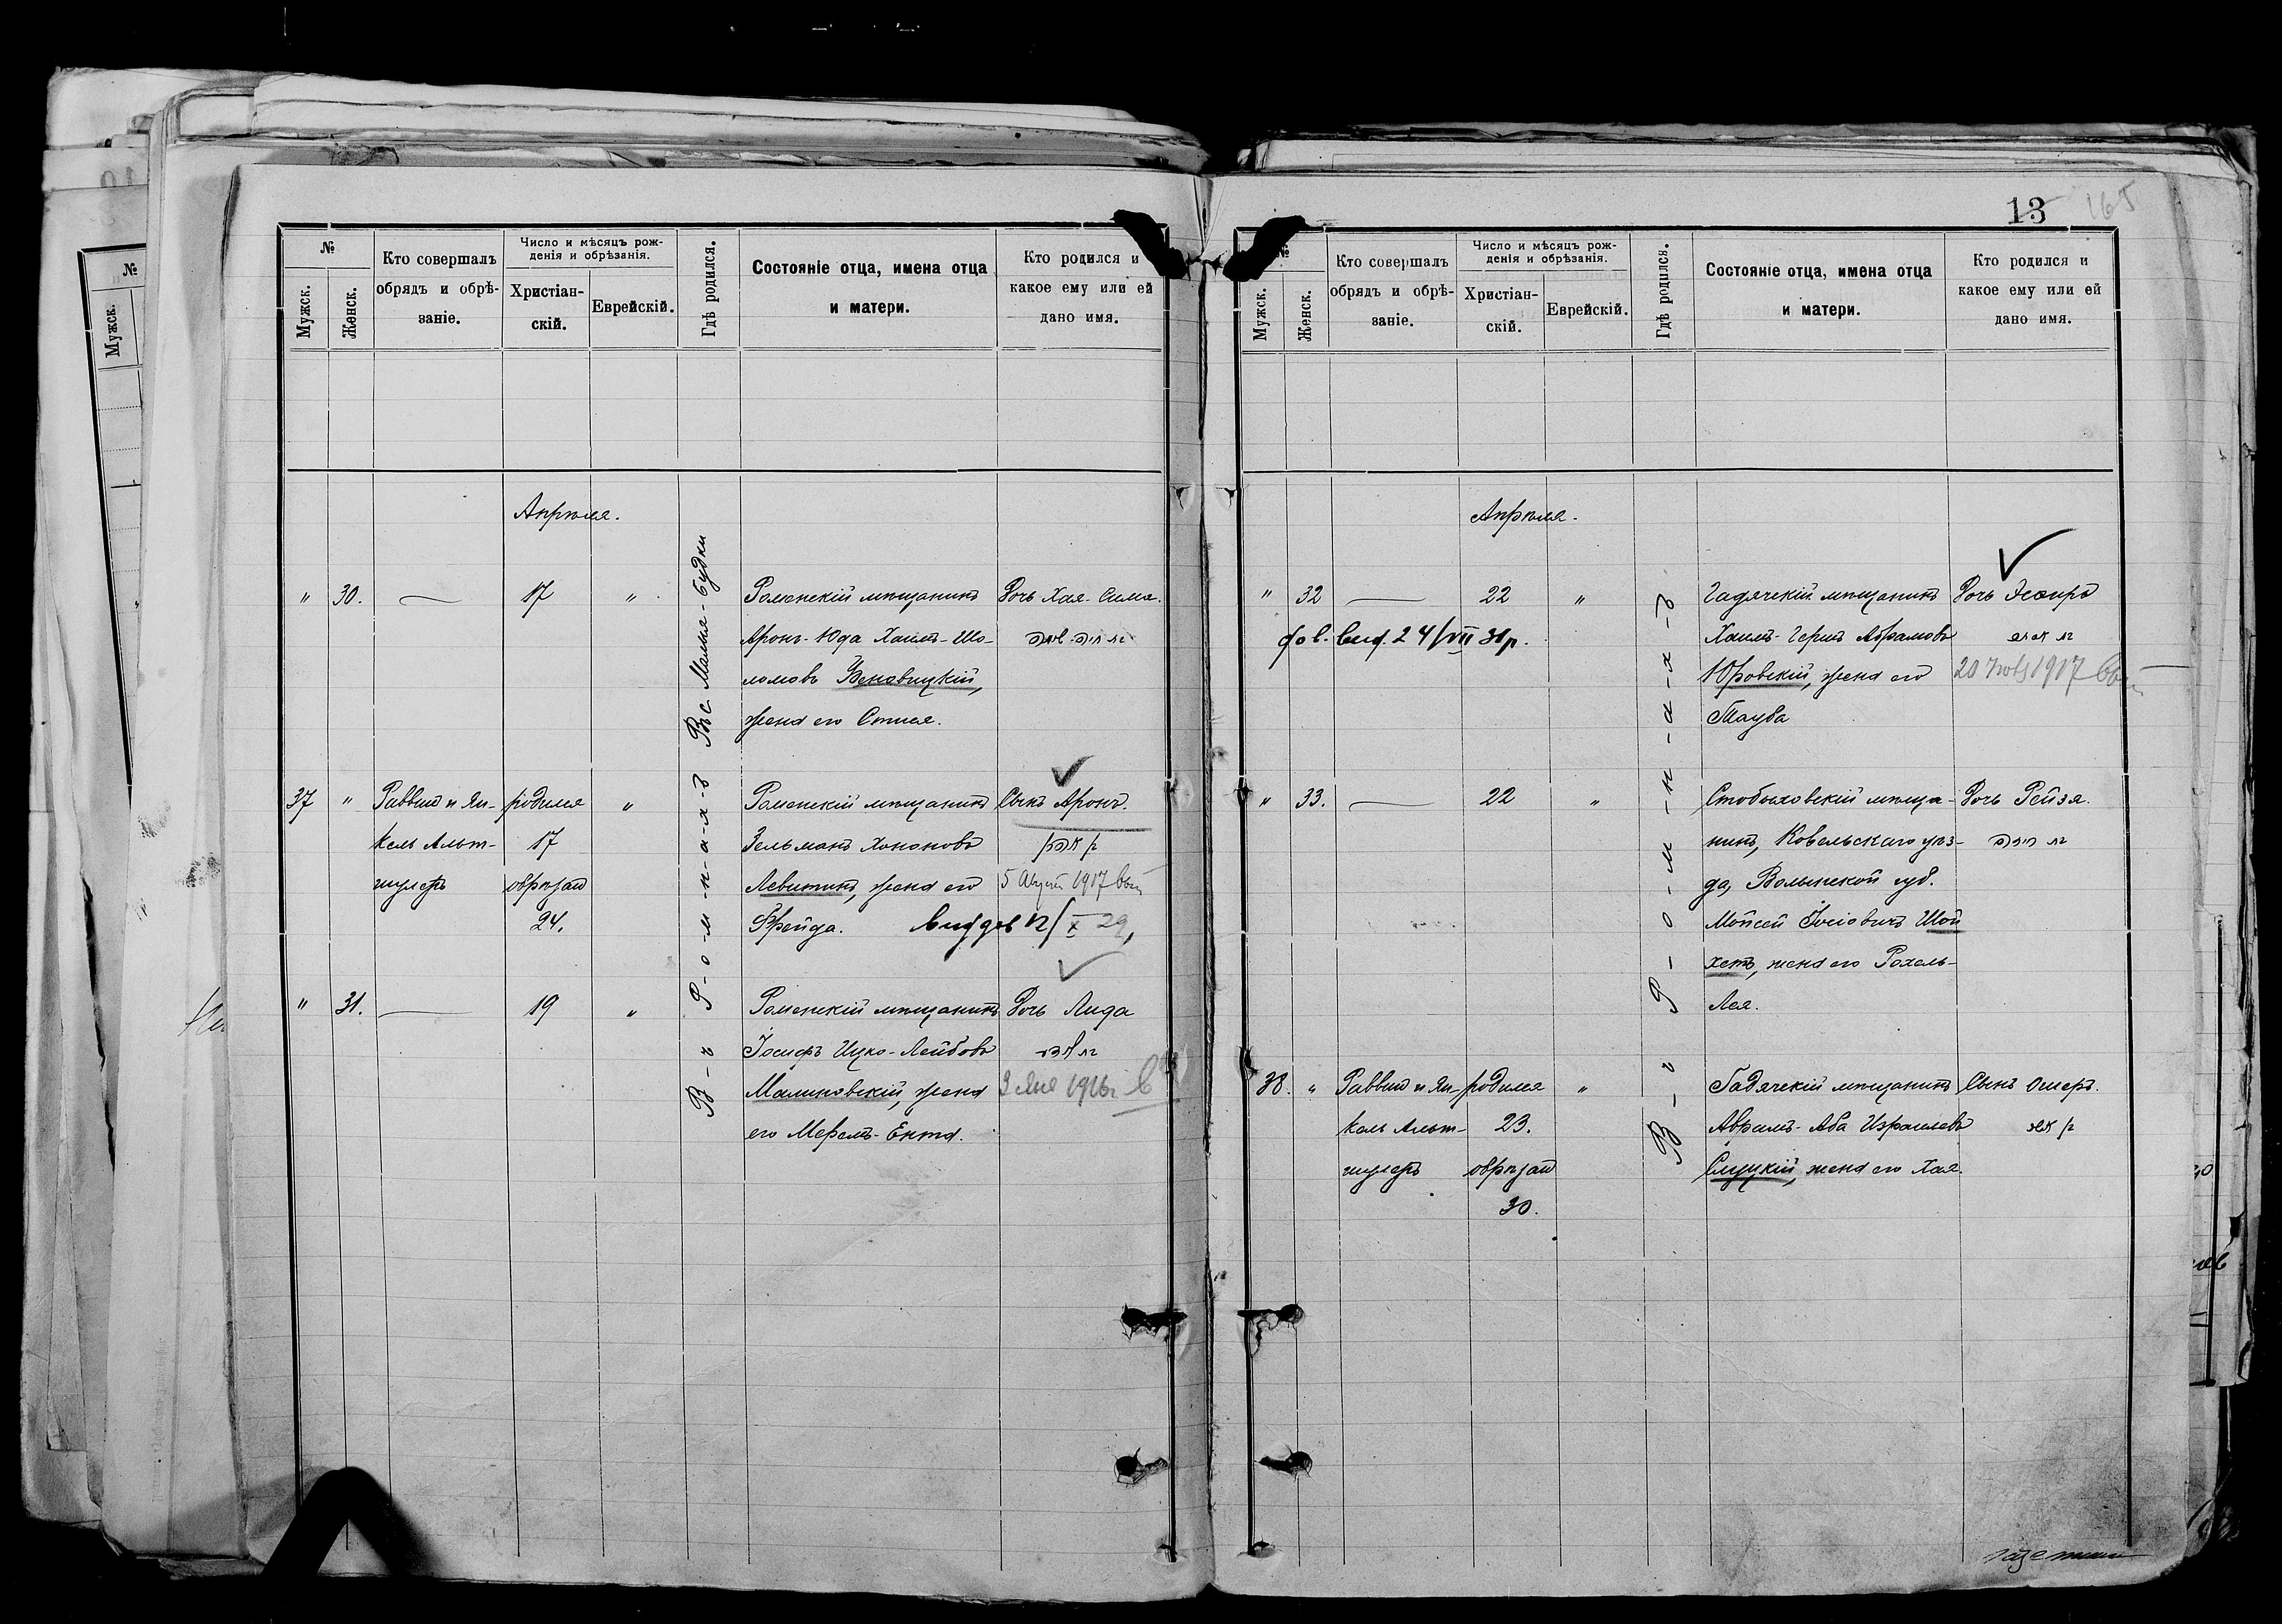 №
Мужск.
№
Мужск.
Женск.
Кто совершалъ
обрядъ и обрѣ-
заніе.
Число и мѣсяцъ рож-
денія и обрѣзанія.
Христіан-
скій.
Еврейскій.
Гдѣ родился.
Состояніе отца, имена отца
и матери.
Кто родился и
какое ему или ей
дано имя.
Апрѣля.
" 30. — 17 "
Вьс Малыя-Будки
Роменскій мѣщанинъ
Аронъ-Юда Хаимъ-Шо-
ломовъ
жена его
Дочь Хая-Сима.
37 "
Раввинъ и Ян-
кель Альт-
шулеръ
родился
17
обрѣзан
24.
"
В-ъ Р-о-м-н-а-х-ъ
Роменскій мѣщанинъ
Зельманъ Хононовъ
Левитинъ, жена его
Фрейда.
Сынъ Аронъ.
1917
" 31. — 19 "
Роменскій мѣщанинъ
Іосифъ Ицко-Лейбовъ
Малиновскій, жена
его Мерелъ-Ента.
Дочь Лида
1916г.
13 165
№
Мужск.
Женск.
Кто совершалъ
обрядъ и обрѣ-
заніе.
Число и мѣсяцъ рож-
денія и обрѣзанія.
Христіан-
скій.
Еврейскій.
Гдѣ родился.
Состояніе отца, имена отца
и матери.
Кто родился и
какое ему или ей
дано имя.
Апрѣля.
" 32 — 22 "
24/VII 31р.
В-ъ Р-о-м-н-а-х-ъ
Гадячскій мѣщанинъ
Хаимъ-Герцъ Абрамовъ
Юровскій, жена его
Тауба
Дочь Эсѳирь
1917
" 33. — 22 "
мѣща-
нинъ, Ковельскаго уѣз-
да, Волынской губ.
Мойсей Іосіовичъ Шой
хетъ, жена его Рохель-
Лея.
Дочь Рейзя.
38. "
Раввинъ и Ян-
кель Альт-
шулеръ
родился
23.
обрѣзан
30.
"
Гадячскій мѣщанинъ
Аврамъ-Аба Израилевъ
Слуцкій, жена его Хая.
Сынъ Ошеръ.